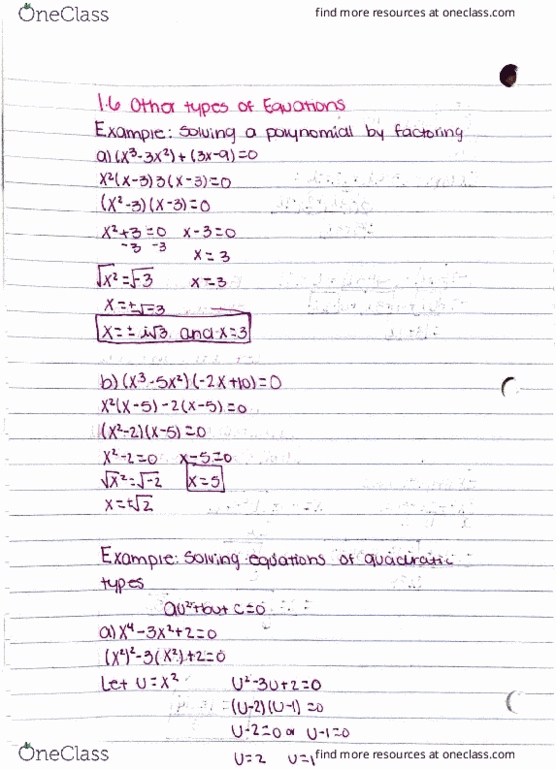 OneClass find more resources at oneclass.com
1.6 Other types of Equations
Example: Solving a polynomial by factoring
a) (x³-3x²)+(3x-9)=0
x²(x-3)3(x-3)=0
(x²-3)(x-3)=0
x²+3=0 x-3=0
-3 -3
x=3
√x²=√-3 x=3
x=±√-3
x=± i√3 and x=3
b) (x³-5x²)(-2x+10)=0
x²(x-5)-2(x-5)=0
(x²-2)(x-5)=0
x²-2=0 x-5=0
√x²=√-2 x=5
x=±√2
Example: Solving equations of quadratic
types
au²+bu+c=0
a) x⁴-3x²+2=0
(x²)²-3(x²)+2=0
Let u=x² u²-3u+2=0
=(u-2)(u-1)=0
u-2=0 or u-1=0
u=2 u=1
OneClass find more resources at oneclass.com